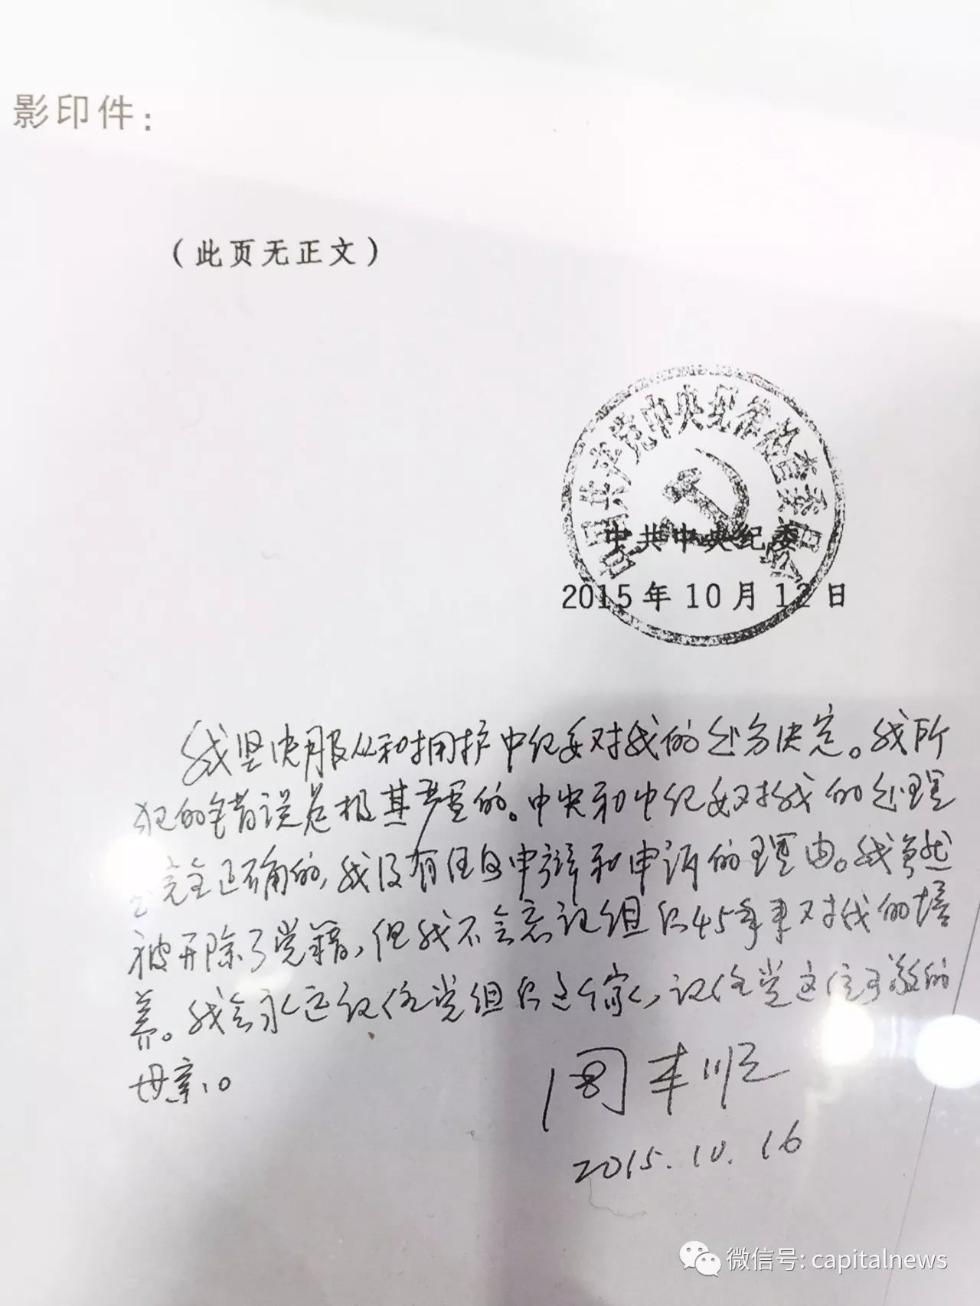 影印件:
(此页无正文)
中国共产党中央纪律检查委员会
中共中央纪委
2015年10月12日
我坚决服从和拥护中纪委对我的处分决定。我所
犯的错误是极其严重的。中央和中纪委对我的处理
是完全正确的,我没有任何申辩和申诉的理由。我虽然
被开除了党籍,但我不会忘记组织45年来对我的培
养。我会永远记住党组织这个家,记住党这位可敬的
母亲。
周本顺
2015.10.16
微信号: capitalnews